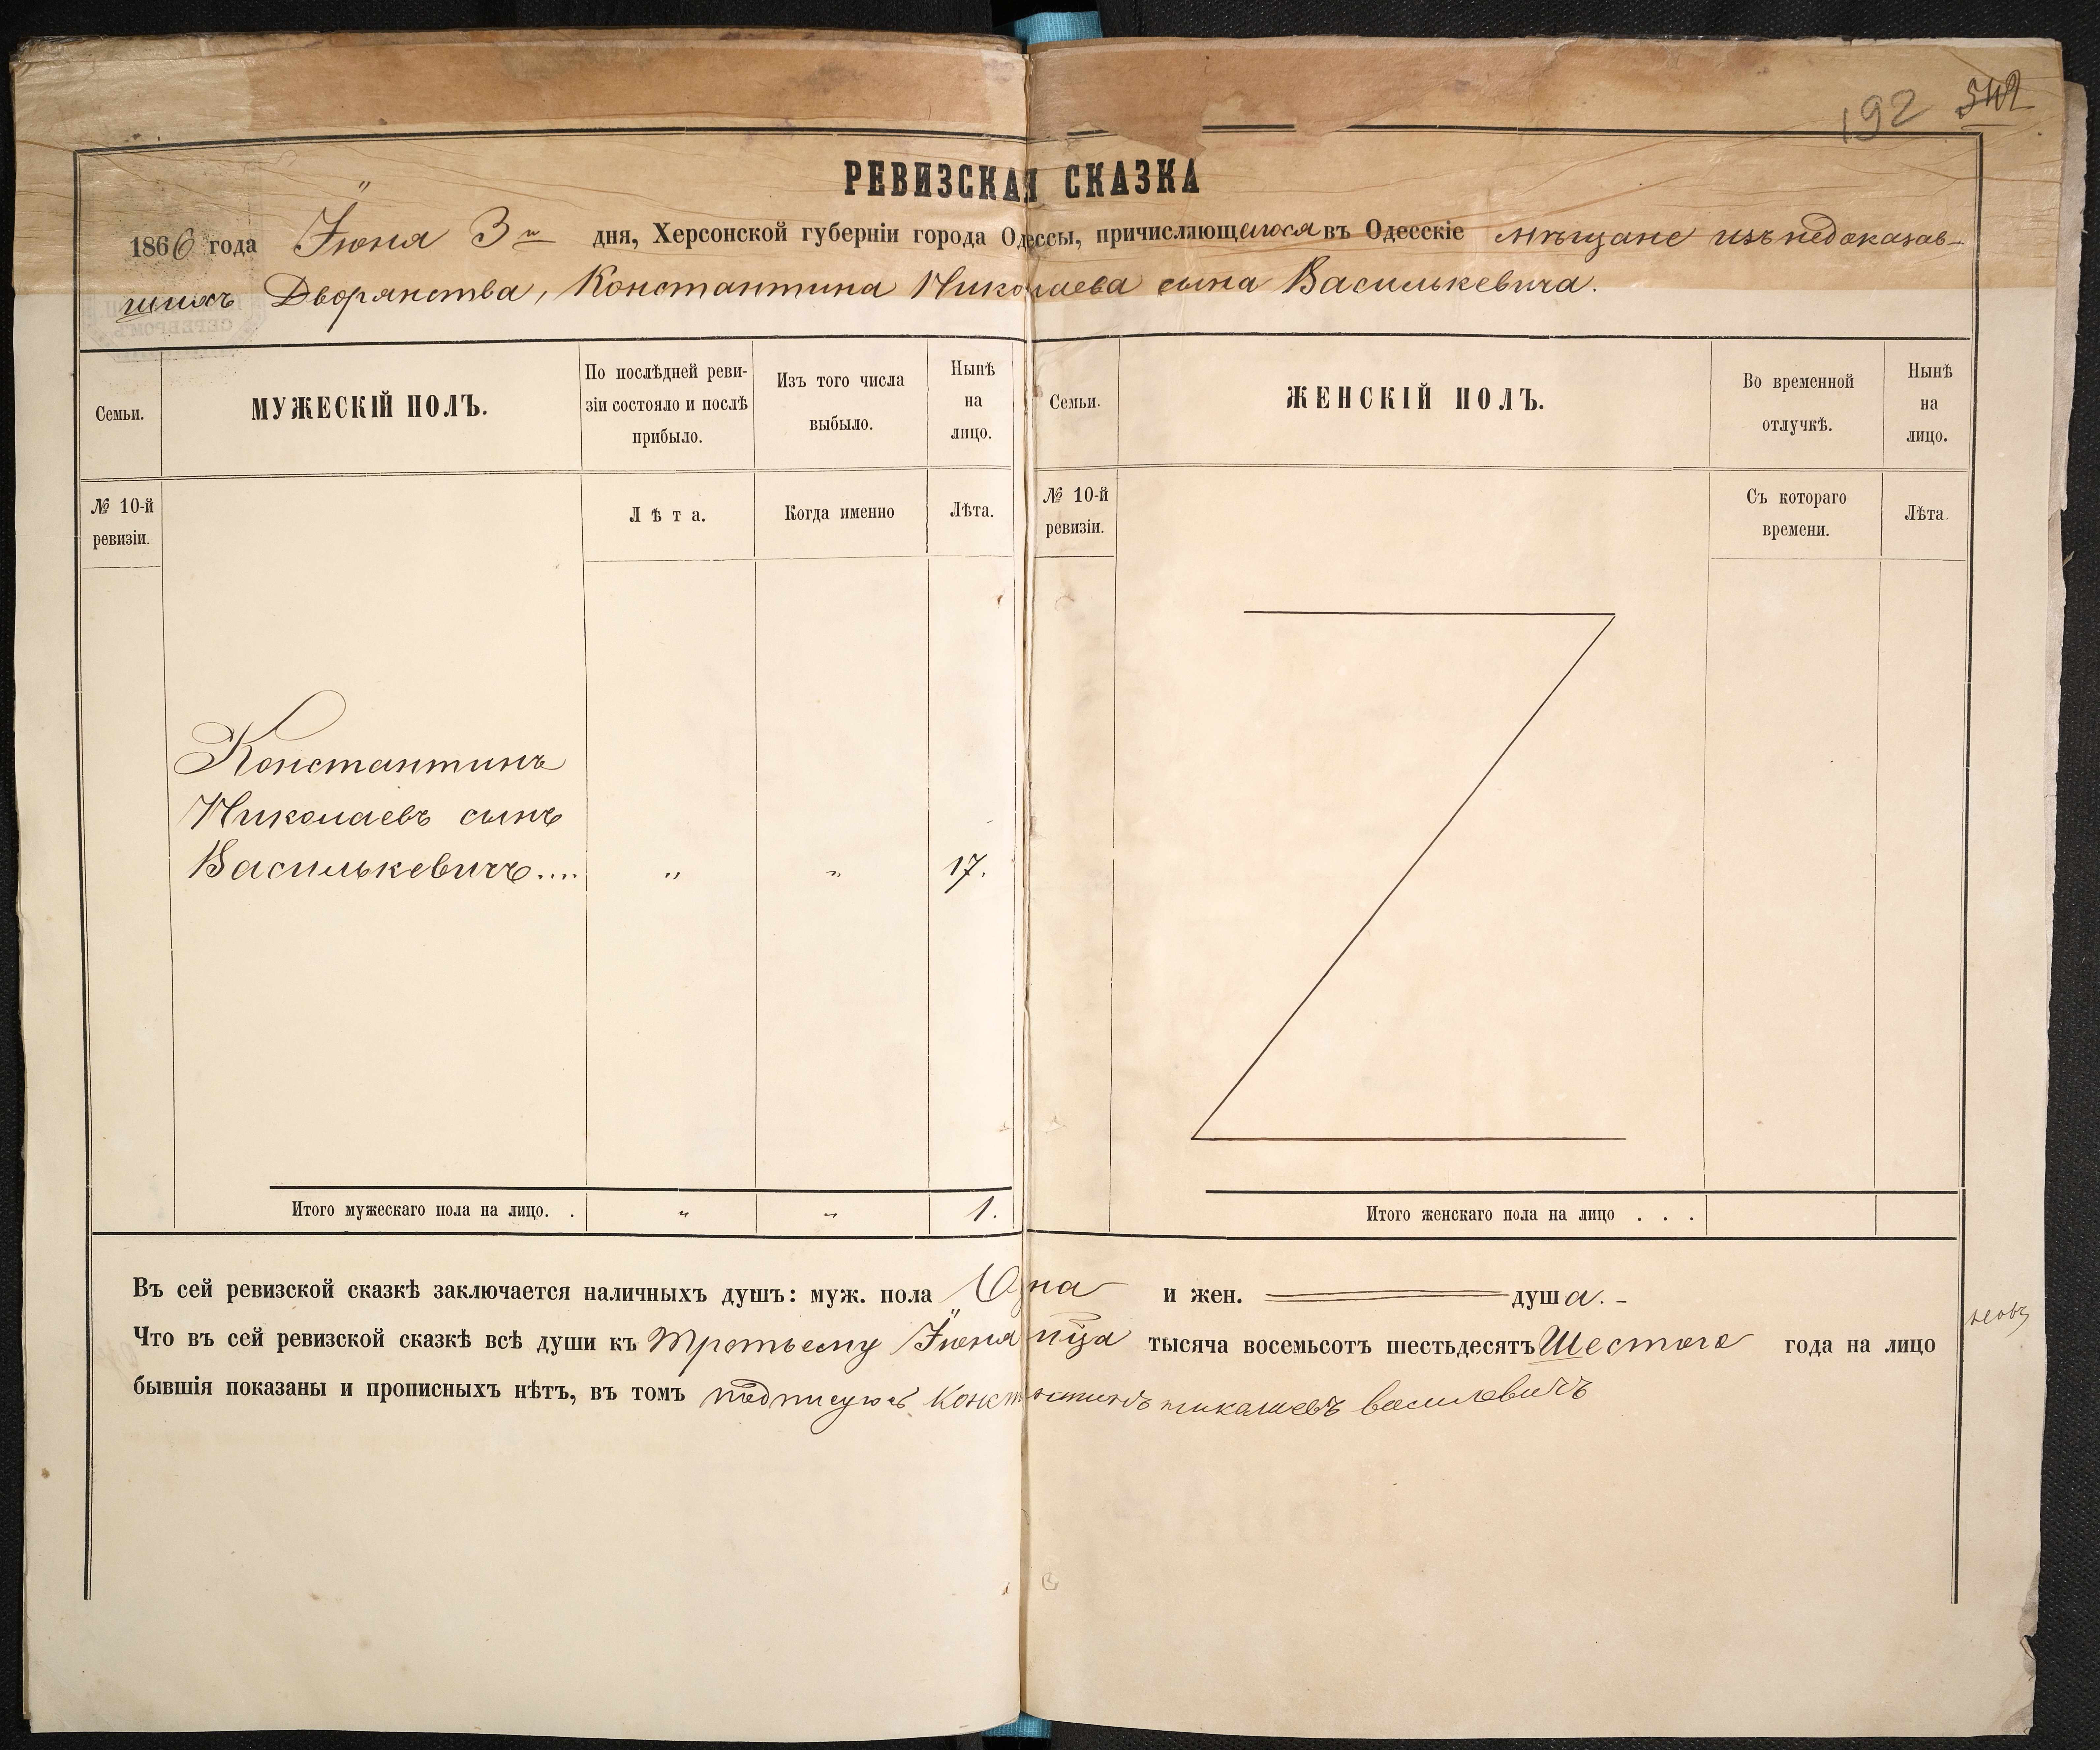 192 542
РЕВИЗСКАЯ СКАЗКА
1866 года Іюня 3го дня, Херсонской губерніи города Одессы, причисляющагося въ Одесскіе мѣщане изъ недоказав-
шихъ Дворянства, Константина Николаева сына Василькевича.
Семьи.
МУЖЕСКІЙ ПОЛЪ.
По послѣдней реви-
зіи состояло и послѣ
прибыло.
Изъ того числа
выбыло.
Нынѣ
на
лицо.
Семьи.
ЖЕНСКІЙ ПОЛЪ.
Во временной
отлучкѣ.
Нынѣ
на
лицо.
№ 10-й
ревизіи.
Лѣта.
Когда именно
Лѣта.
№ 10-й
ревизіи.
Съ котораго
времени.
Лѣта.
Константинъ
Николаевъ сынъ
Василькевичъ.... " " 17.
Итого мужескаго пола на лицо. . " " 1.
Итого женскаго пола на лицо . . .
Въ сей ревизской сказкѣ заключается наличныхъ душъ: муж. пола Одна и жен. душа.
Что въ сей ревизской сказкѣ всѣ души къ третьему Іюня мца тысяча восемьсотъ шестьдесятъ Шестого года на лицо
бывшія показаны и прописныхъ нѣтъ, въ томъ подписуюсь Константинъ николаевъ василевичъ